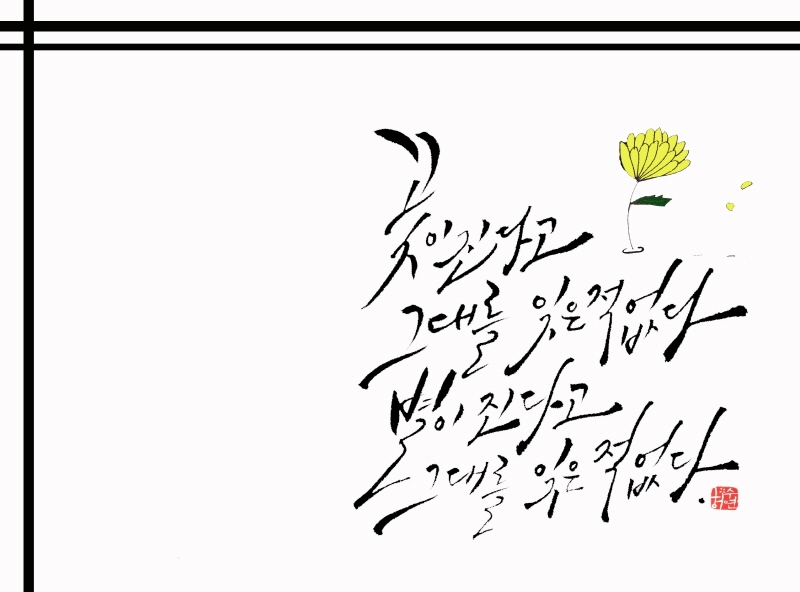 꽃이 진다고
그대를 잊은적 없다
별이 진다고
그대를 잊은적 없다.